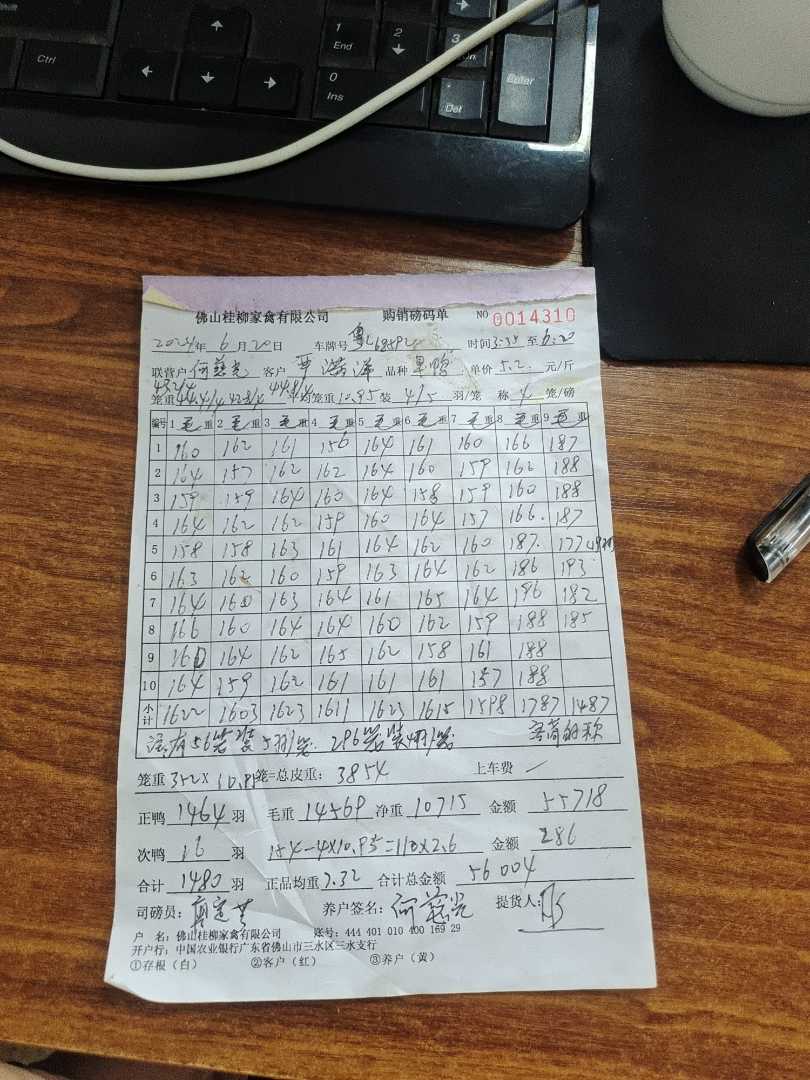 Ctrl
1 End
2
3
0 Ins
Del
Enter
佛山桂柳家禽有限公司 购销磅码单 NO 0014310
2024年 6月20日 车牌号 粤 时间3:35 至6:20
联营户 何慈光 客户 品种 单价 5.2 元/斤
笼重 平均笼重 10.95 装 4/5 羽/笼 称 4 笼/磅
编号 1 毛重 2 毛重 3 毛重 4 毛重 5 毛重 6 毛重 7 毛重 8 毛重 9 毛重
1 160 162 161 156 164 161 160 166 187
2 164 157 162 162 164 160 159 162 188
3 159 159 164 160 164 158 159 160 188
4 164 162 162 159 160 164 157 166 187
5 158 158 163 161 164 162 160 187 177
6 163 162 160 159 163 164 162 186 193
7 164 160 163 164 161 165 164 196 182
8 166 160 164 164 160 162 159 188 185
9 160 164 162 165 162 158 161 188
10 164 159 162 161 161 161 157 188
小计 1622 1603 1623 1611 1623 1615 1598 1787 1487
注:有56笼装5羽/笼. 296笼装4羽/笼
笼重 352 X 10.95 笼=总皮重: 3854 上车费
正鸭 1464 羽 毛重 14569 净重 10715 金额 55718
次鸭 16 羽 154-4×10.95=110×2.6 金额 286
合计 1480 羽 正品均重 7.32 合计总金额 56004
司磅员: 养户签名: 何慈光 提货人:
户 名: 佛山桂柳家禽有限公司 账号: 444 401 010 400 169 29
开户行: 中国农业银行广东省佛山市三水区三水支行
①存根(白) ②客户(红) ③养户(黄)